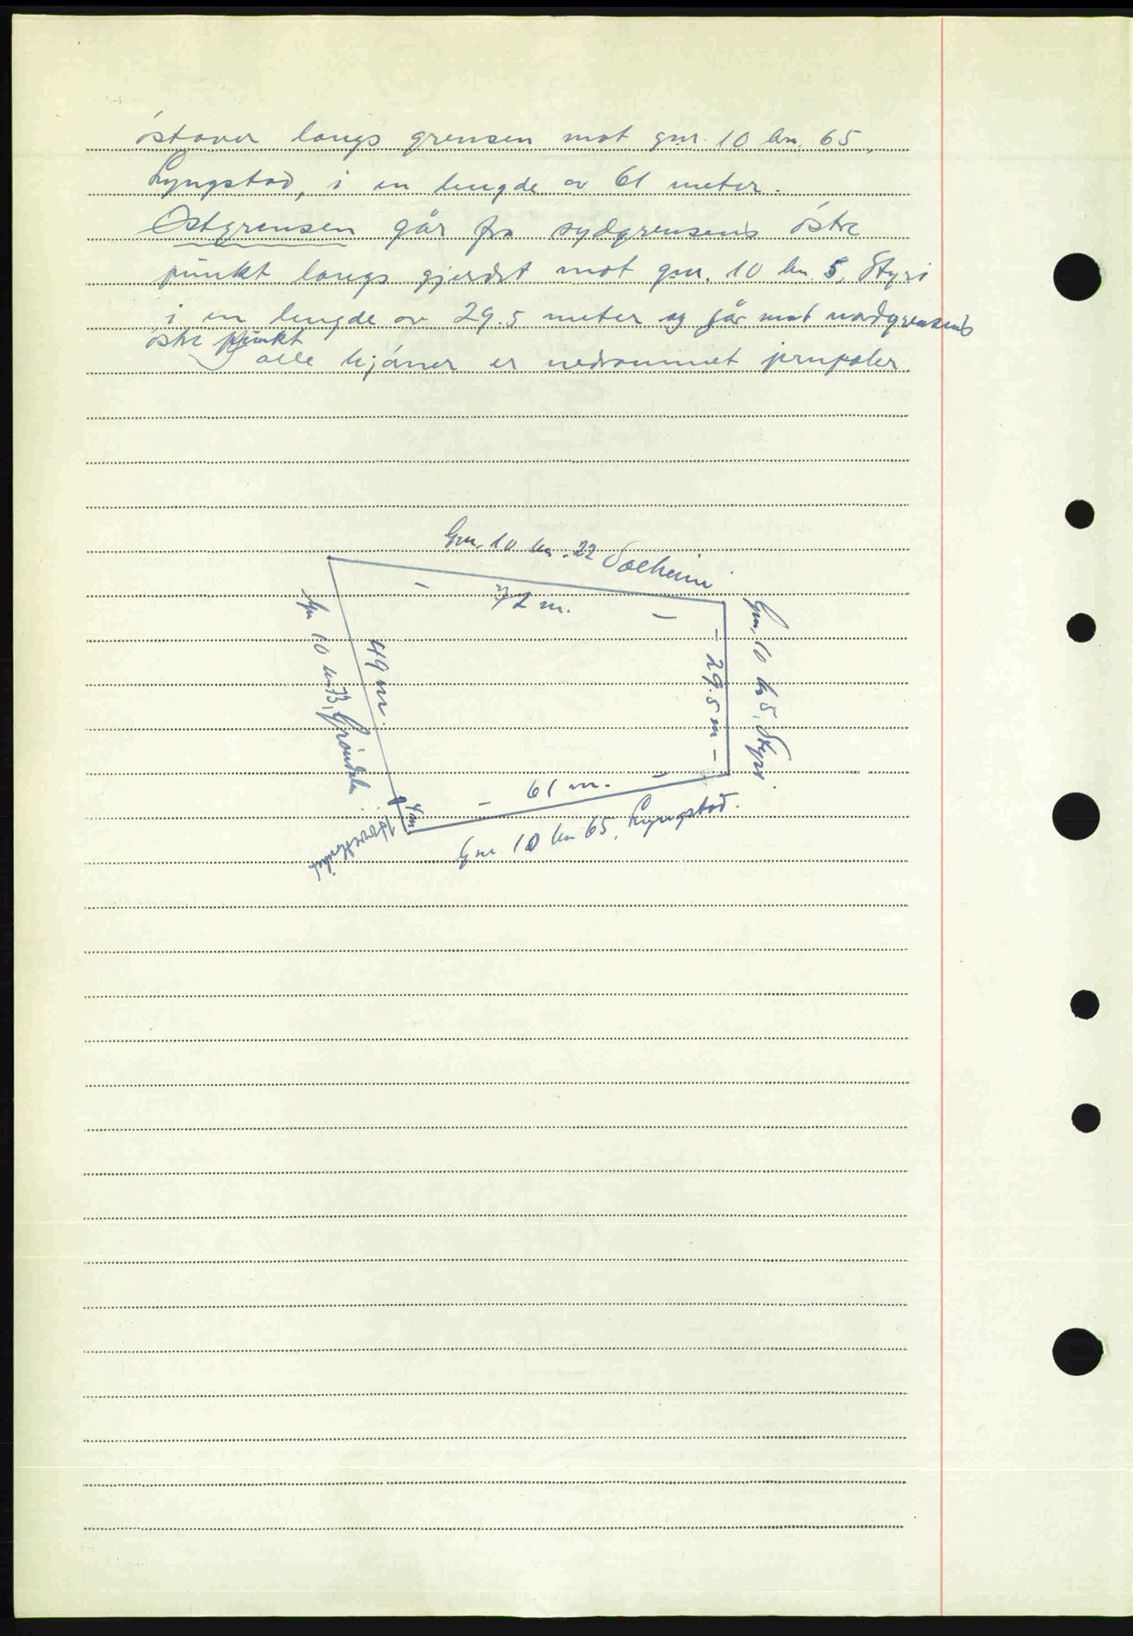 østover langs grensen mot gnr. 10 bn. 65,
Lyngstad, i en lengde av 61 meter.
Østgrensen går fra sydgrensens østre
punkt langs gjerdet mot gnr. 10 bn 5, Styri
i en lengde av 29.5 meter og går mot nordgrensens
østre punkt
alle hjørner er nedrammet jernpæler.
Gnr. 10 bn. 22 Solheim
72 m.
Gnr. 10 bn 5, Styri.
29.5 m
49 m.
Gnr 10 bn 13, Grøndalen
4 m
61 m.
Gnr 10 bn 65, Lyngstad.